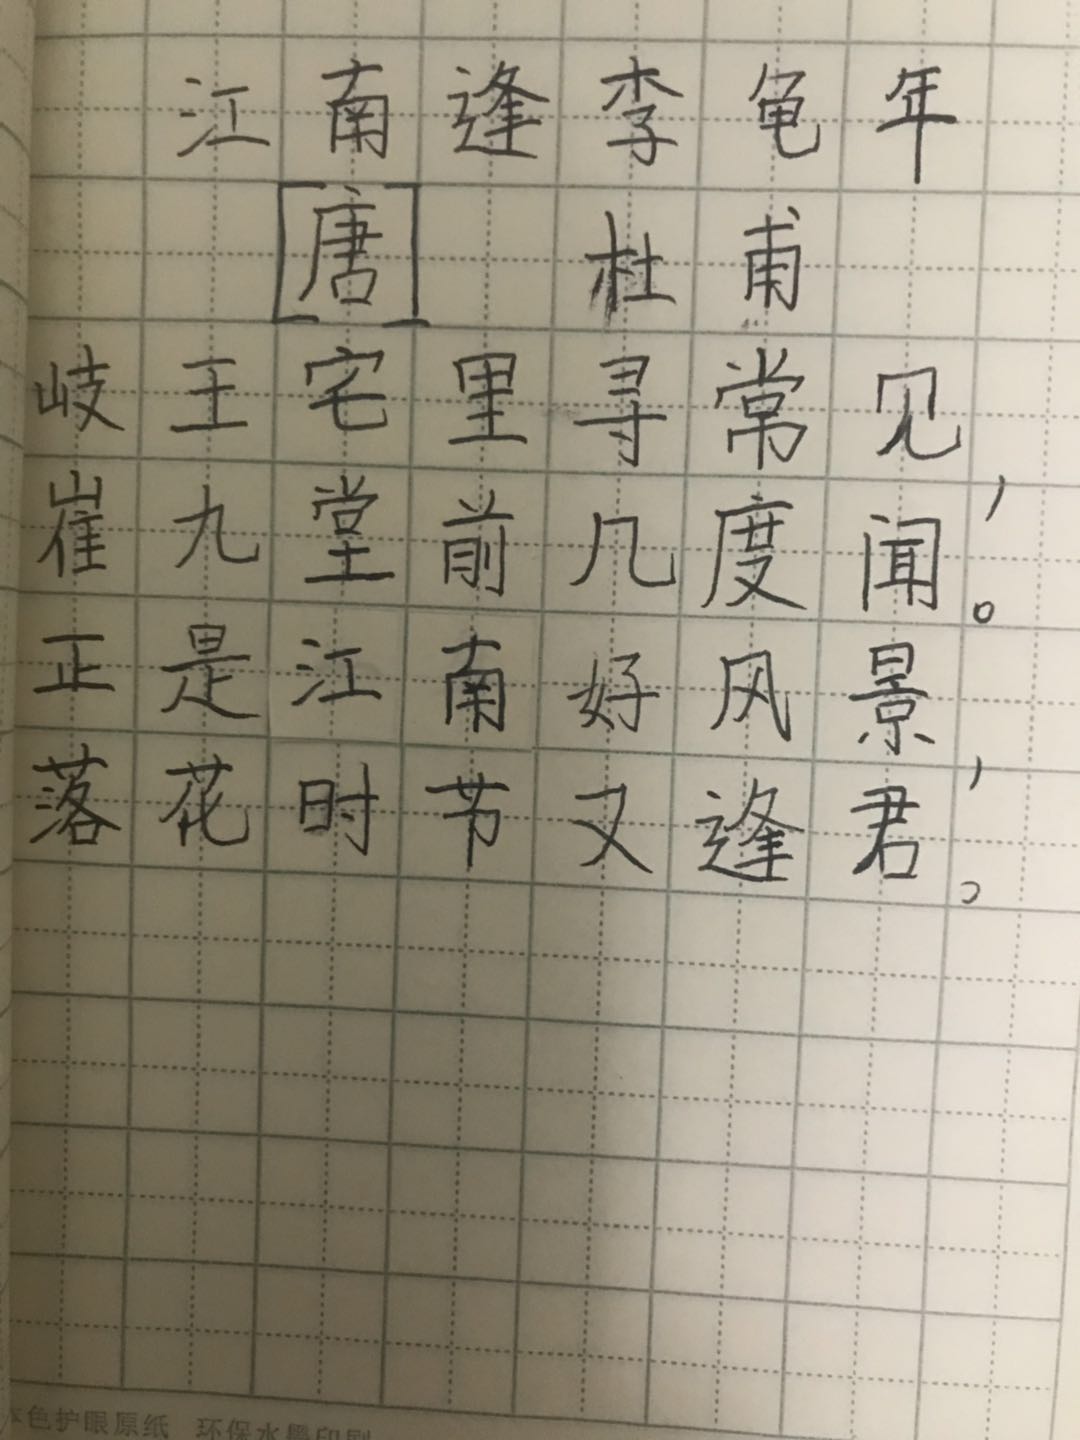 江南逢李龟年
[唐] 杜甫
岐王宅里寻常见，
崔九堂前几度闻。
正是江南好风景，
落花时节又逢君。
本色护眼原纸 环保水墨印刷